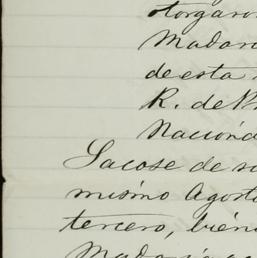 otorgaro
Madar
de esta
R. de
Nacion
Sacose de
mismo Agost
tercero, bien
Mad